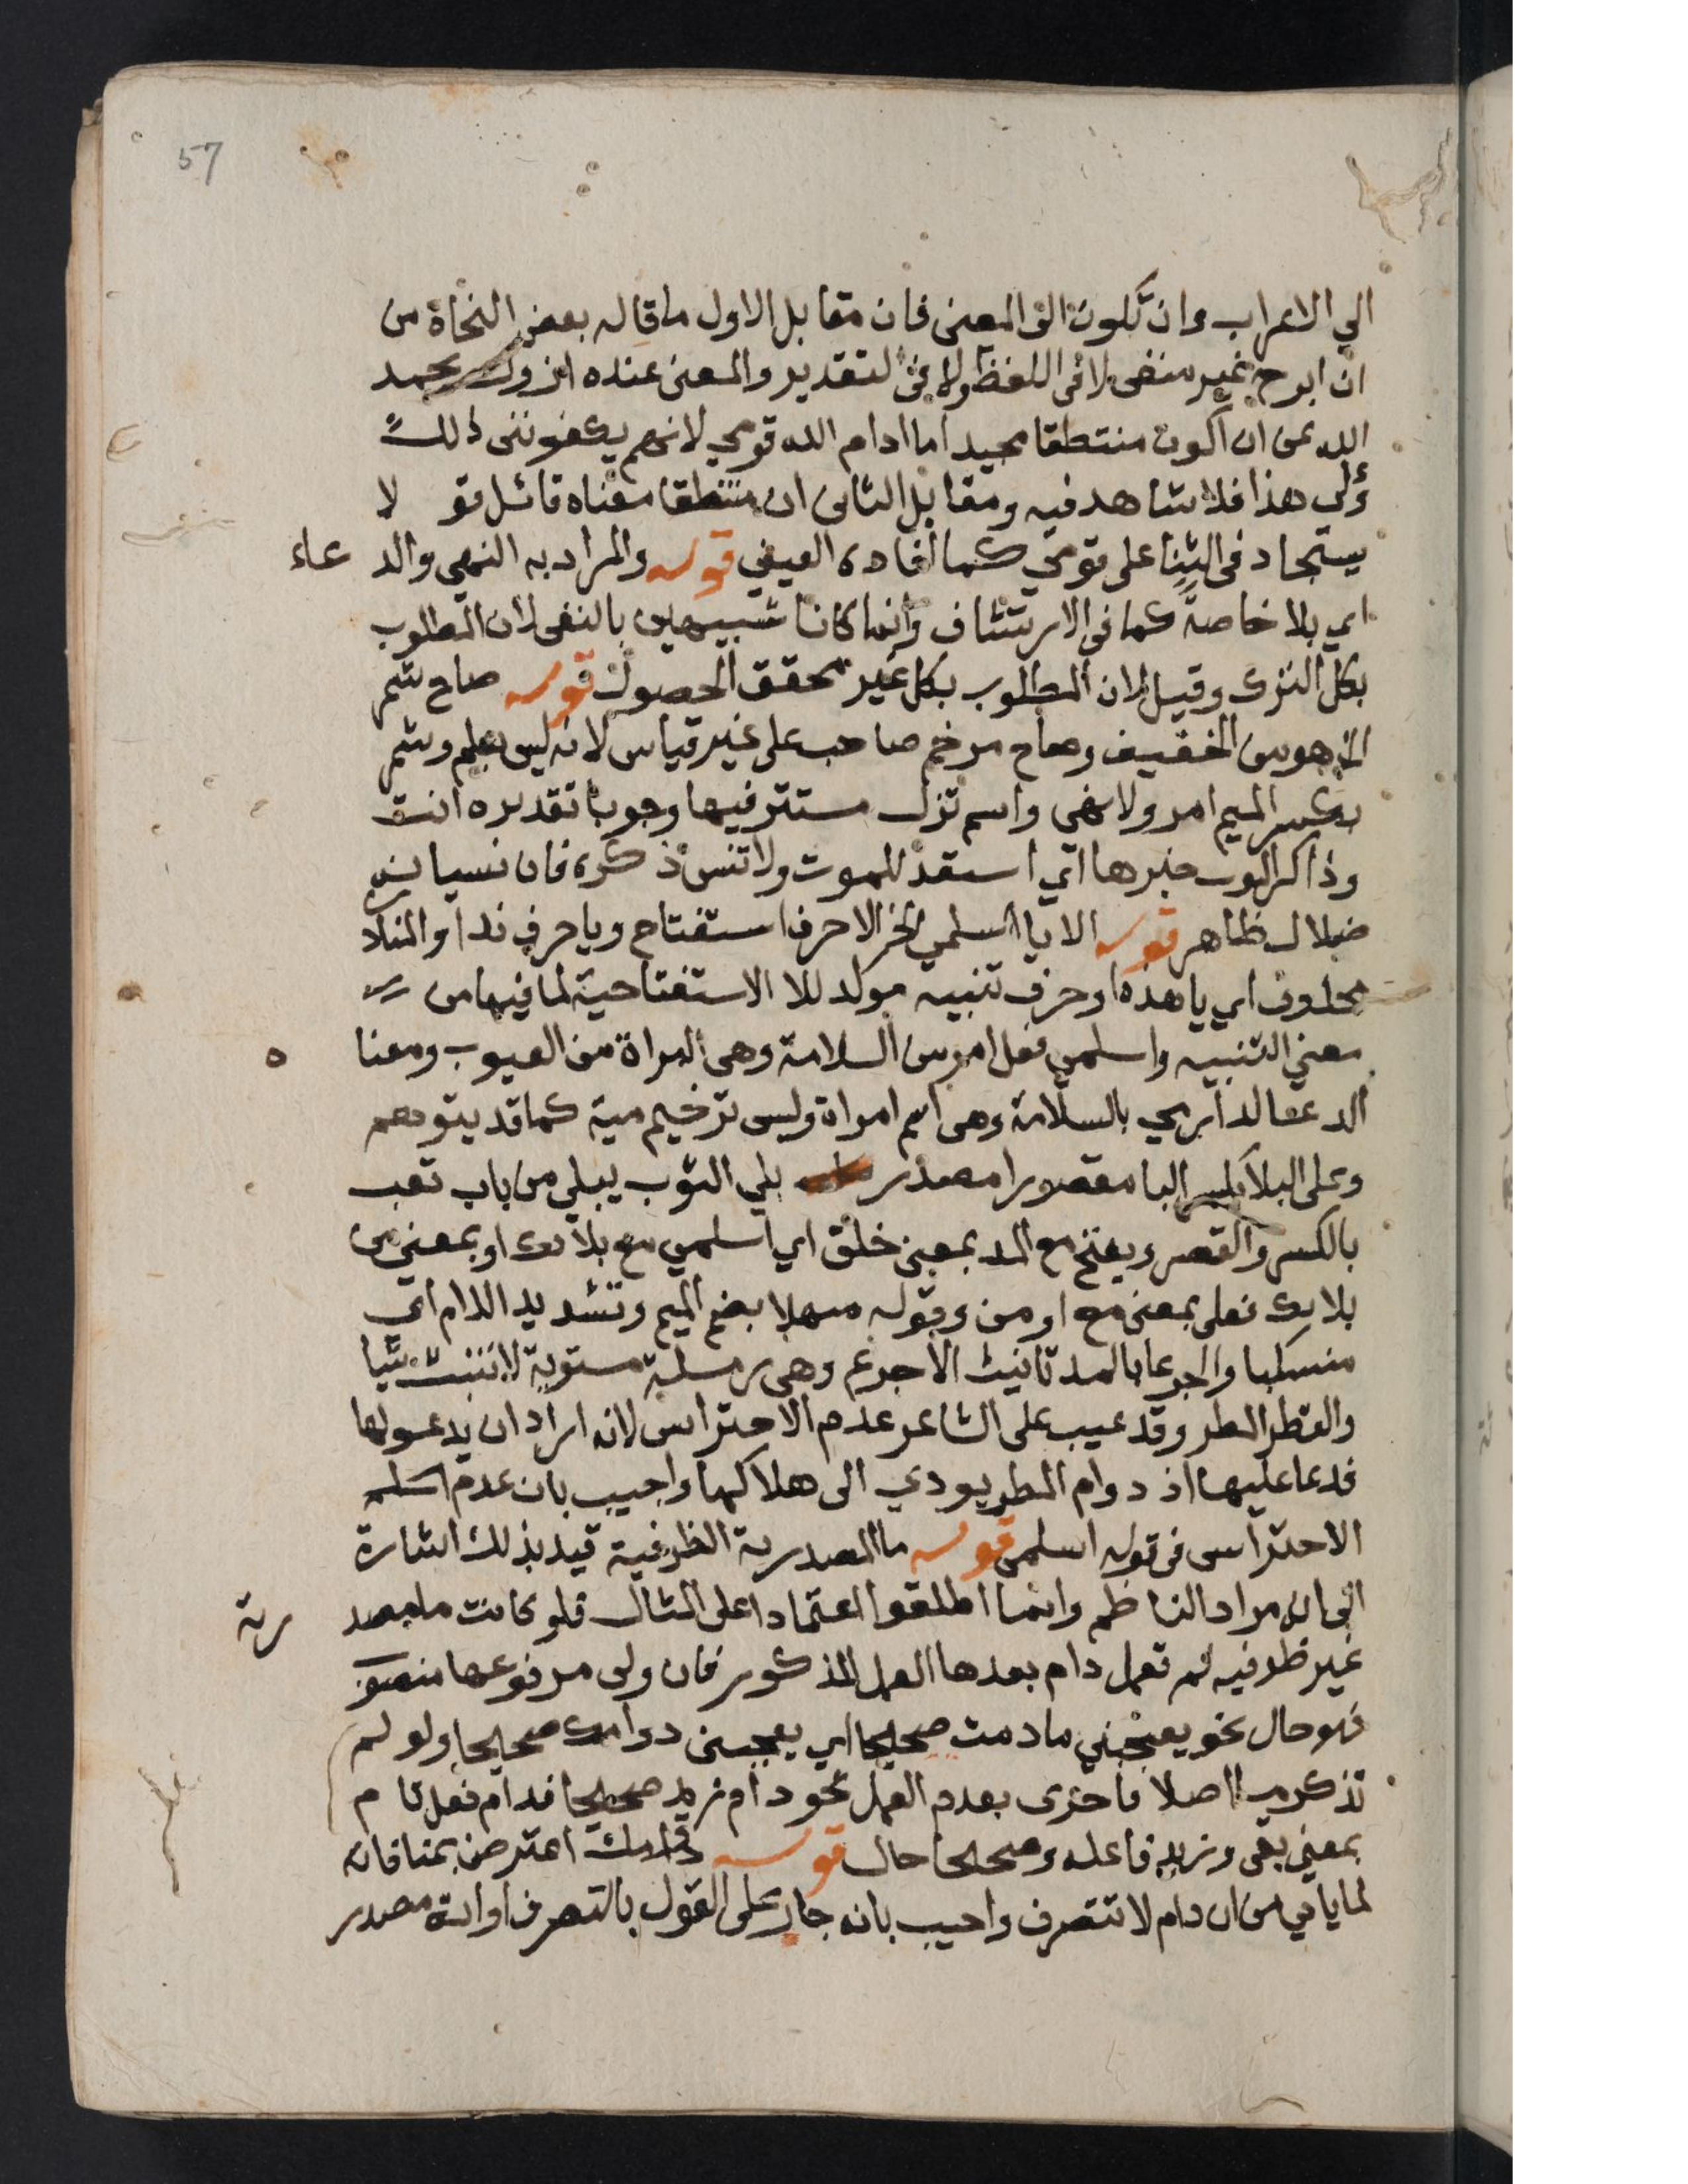 57
الي الاعراب وان تكون الى المعنى فان مقابل الاول ما قاله بعض النحاة من
ان ابرح غير منفى لا فى اللفظ ولا فى التقدير والمعنى عنده ازول بحمد
الله عن ان اكون منتطقا مجيدا ما ادام الله قومي لانهم يكفوننى ذلك
وعلى هذا فلا شاهد فيه ومقابل الثانى ان منتطقا معناه قائل قو لا
يستجاد فى الثنا على قومي كما افاده العيني قوله والمراد به النهي والد عاء
اي بلا خاصة كما فى الارتشاف وانما كانا شبيهين بالنفى لان المطلوب
بكل الترك وقيل لان المطلوب بكل غير محقق الحصول قوله صاح شمر
الخ هو من الخفيف وصاح مرخم صاحب على غير قياس لانه ليس بعلم وشمر
بكسر الميم امر ولا نهى واسم تزل مستتر فيها وجوبا تقديره انت
وذاكر الموت خبرها اي استعد للموت ولا تنس ذكره فان نسيانه
ضلال ظاهر قوله الا يا اسلمي الخ الا حرف استفتاح ويا حرف ندا والمناد
محذوف اي يا هذه او حرف تنبيه موكد للا الاستفتاحية لما فيها من
معني التنبيه واسلمي فعل امر من السلامة وهى البراة من العيوب ومعنا ه
الدعا لدار مي بالسلامة وهى اسم امراة وليس ترخيم مية كما قد يتوهم
وعلى البلا بكسر البا مقصورا مصدر بلي الثوب يبلي من باب تعب
بالكسر والقصر ويفتح مع المد بمعنى خلق اي اسلمي مع بلاك او بمعنى من
بلاك فعلى بمعنى مع او من وقوله منهلا بضم الميم وتشديد اللام اي
منسكبا والجرعا بالمد تانيث الاجرع وهى رملة مستوية لا تنبت شيا
والقطر المطر وقد عيب على الشاعر عدم الاحتراس لانه اراد ان يدعو لها
فدعا عليها اذ دوام المطر يودي الى هلاكها واجيب بان عدم
الاحتراس فى قوله اسلمى قوله ما المصدرية الظرفية قيد بذلك اشارة
الى انه مراد الناظم وانما اطلقوا اعتمادا على المثال فلو كانت ما مصد رية
غير ظرفيه لم تعمل دام بعدها العمل المذكور فان ولى مرفوعها منصوب
فهو حال نحو يعجبني ما دمت صحيحا اي يعجبنى دوامك صحيحا ولو لم
تذكر ما اصلا فاحرى بعدم العمل نحو دام زيد صحيحا فدام فعل تام
بمعني بقى وزيد فاعله وصحيحا حال قوله دوامك اعترض بمنافاته
لما ياتي من ان دام لا تتصرف واجيب بانه جار على القول بالتصرف او انه مصدر